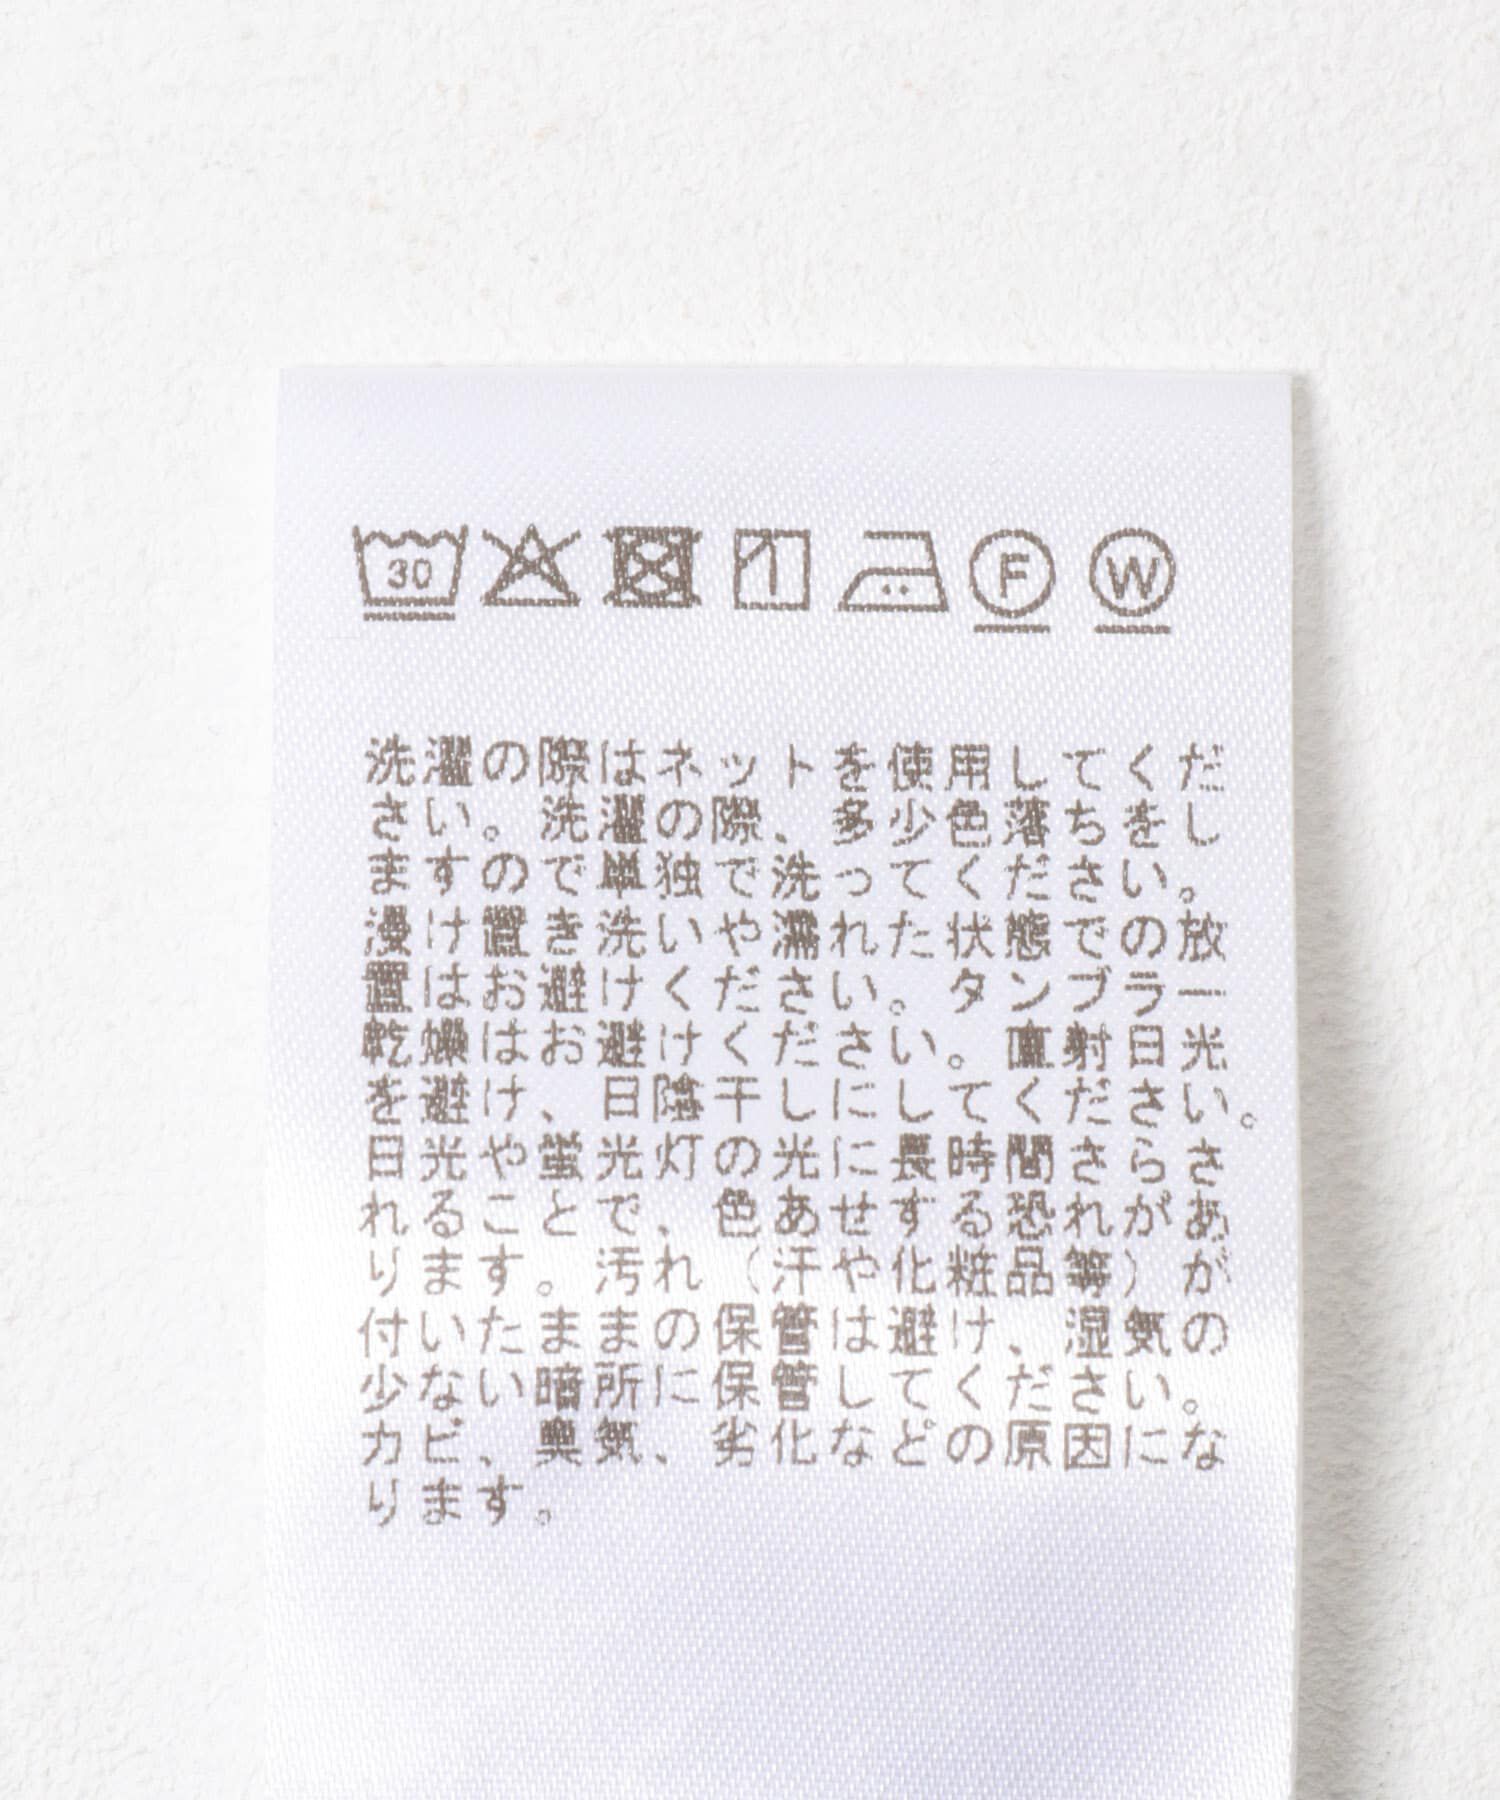 30 F W
洗濯の際はネットを使用してくだ
さい。洗濯の際、多少色落ちをし
ますので単独で洗ってください。
漫け置き洗いや濡れた状態での放
置はお避けください。タンブラー
乾燥はお避けください。直射日光
を避け、日陰干しにしてください。
日光や蛍光灯の光に長時間さらさ
れることで、色あせする恐れがあ
ります。汚れ（汗や化粧品等）が
付いたままの保管は避け、湿気の
少ない暗所に保管してください。
カビ、臭気、劣化などの原因にな
ります。